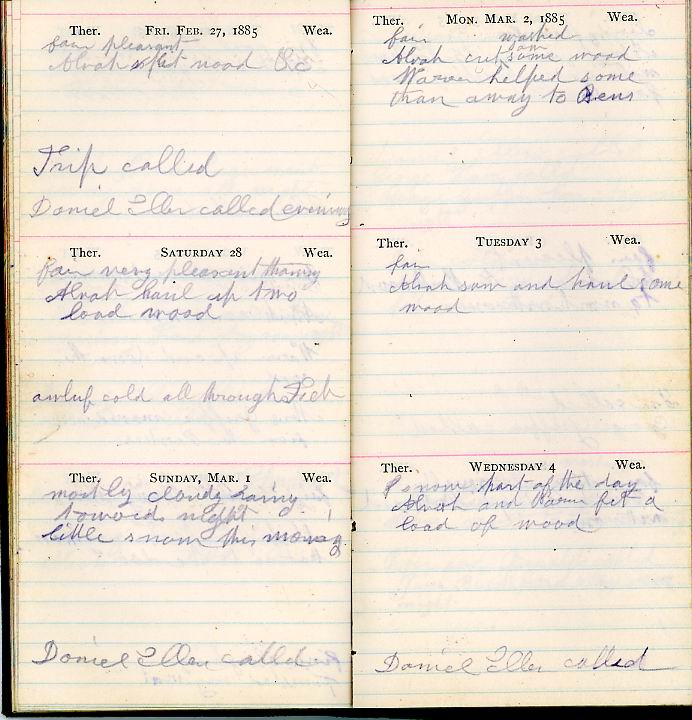 Ther. FRI. FEB. 27, 1885 Wea.
fair pleasant
Alvah split wood &c
Trip called
Daniel Ellen called evening
Ther. SATURDAY 28 Wea.
fair very pleasant thawing
Alvah haul up two
load wood
awluf cold all through Feb
Ther. SUNDAY, MAR. 1 Wea.
mostly cloudy rainy
towards night
little snow this morning
Daniel Ellen called
Ther. MON. MAR. 2, 1885 Wea.
fair washed
Alvah cut some wood
Warren helped some
than away to Bens
Ther. TUESDAY 3 Wea.
fair
Alvah saw and haul some
wood
Ther. WEDNESDAY 4 Wea.
snow part of the day
Alvah and Warren fet a
load of wood
Daniel Ellen called